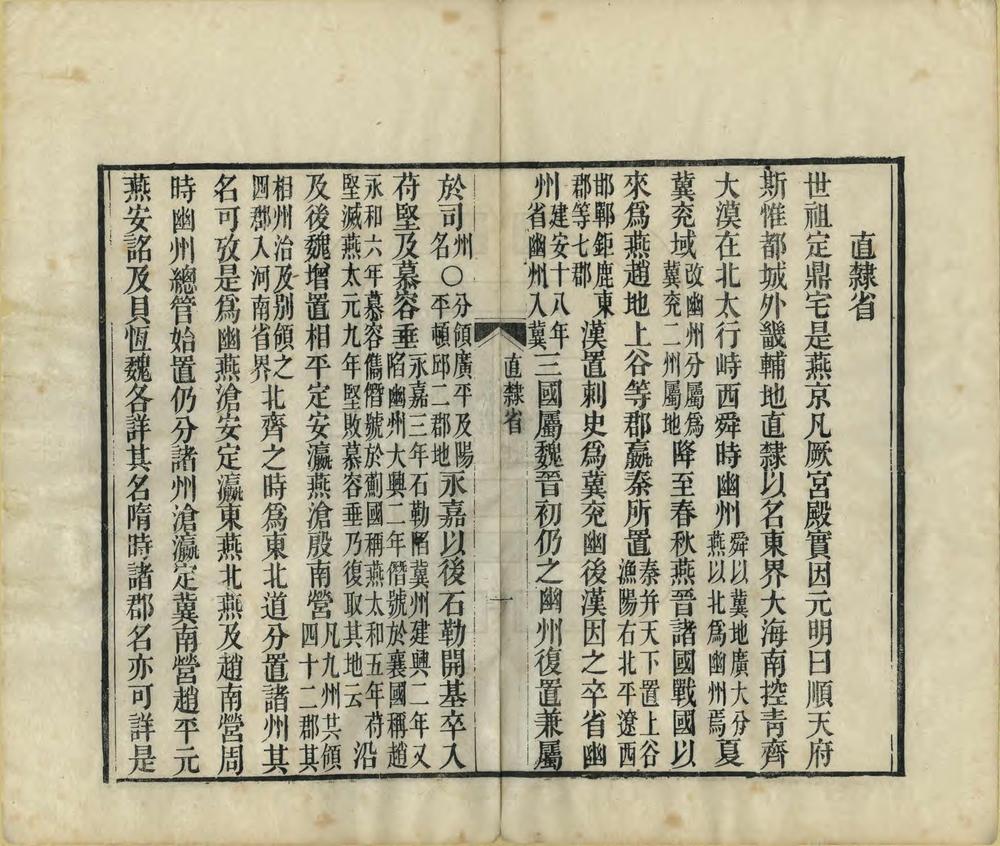 直隸省
世祖定鼎宅是燕京凡厥宮殿實因元明曰順天府
斯惟都城外畿輔地直隸以名東界大海南控青齊
大漠在北太行峙西舜時幽州舜以冀地廣大分燕以北爲幽州焉夏
冀兗域改幽州分屬爲冀兗二州屬地降至春秋燕晉諸國戰國以
來爲燕趙地上谷等郡嬴秦所置秦并天下置上谷漁陽右北平遼西
邯鄲鉅鹿東郡等七郡漢置刺史爲冀兗幽後漢因之卒省幽
州建安十八年省幽州入冀三國屬魏晉初仍之幽州復置兼屬
直隸省 一
於司州名〇分領廣平及陽平頓邱二郡地永嘉以後石勒開基卒入
苻堅及慕容垂永嘉三年石勒陷冀州建興二年又陷幽州大興二年僭號於襄國稱趙
永和六年慕容儁僭號於薊國稱燕太和五年苻堅滅燕太元九年堅敗慕容垂乃復取其地云沿
及後魏增置相平定安瀛燕滄殷南營凡九州共領四十二郡其
相州治及別領之四郡入河南省界北齊之時爲東北道分置諸州其
名可攷是爲幽燕滄安定瀛東燕北燕及趙南營周
時幽州總管始置仍分諸州滄瀛定冀南營趙平元
燕安詺及貝恆魏各詳其名隋時諸郡名亦可詳是